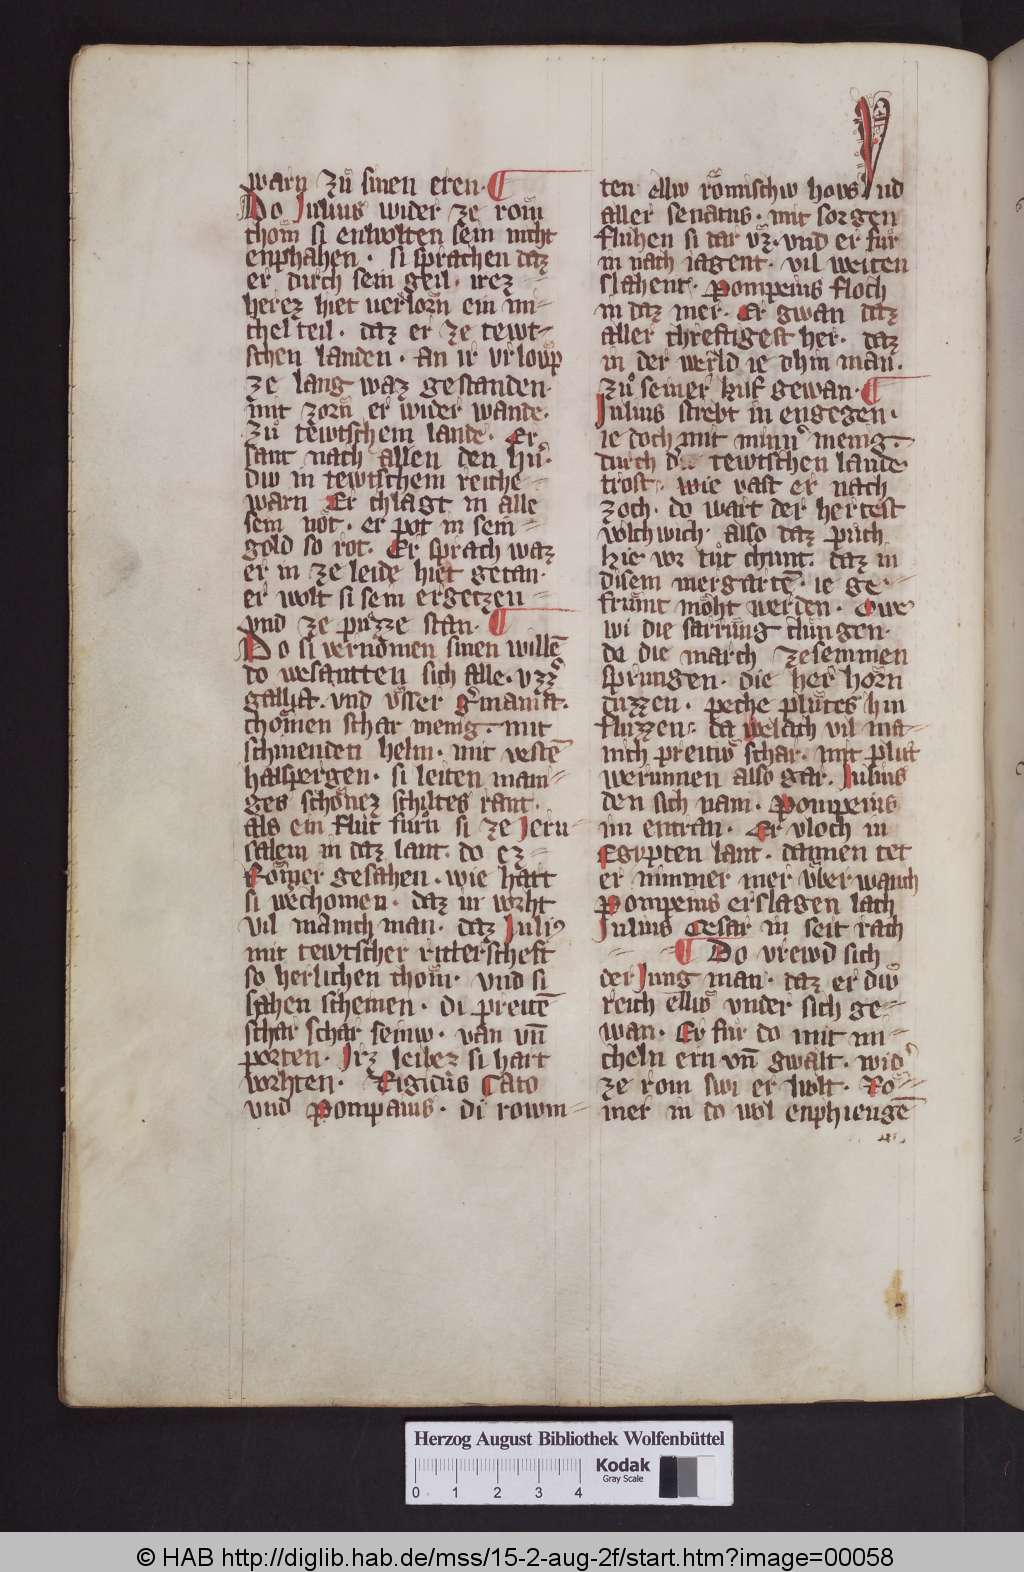 warn zů sinen eren ·
Do Julius wider ze rom̄
chom̄ si enwolten sein nicht
enphahen · si sprachen daz
er durch sein geil · irez
herez hiet verlorn̄ ein mi=
chel teil · daz er ze tewt=
schen landen · an ir vrloup
ze lang waz gestanden ·
mit zorn̄ er wider wande ·
zů tewtschem lande · Er
sant nach allen den hr̄n ·
diw in tewtschem reiche =
warn Er chlagt in alle
sein not · er pot in sein =
gold so rot · Er sprach waz
er in ze leide hiet getan ·
er wolt si sein ergetzen =
vnd ze puzze stan ·
Do si vernomen sinen willē
do besantten sich alle · vzz
gallia · vnd vsser germania ·
chomen schar menig · mit
scheinenden helm · mit vestē
halspergen · si leiten mani=
ges schonez schiltes rant ·
als ein flut furn̄ si ze Jeru=
salem in daz lant · do ez =
Romer gesahen · wie hart
si wechomen · daz in worht
vil manich man · daz Juli9
mit tewtscher ritterscheft
so herlichen chom̄ · vnd si
sahen scheinen · di preitē
schar schar seinw · van vn̄
porten · Irz leibez si hart
worhten · Rigidus Cato
vnd Pompaius · di rowm=
ten ellw römischw hovs Vnd
aller senatus · mit sorgen
fluhen si dar vz · vnd er fur
in nach iagent · vil weiten
slahent · Pompeius floch
in daz mer · Er gwan daz
aller chreftigest her · daz
in der werld ie dhin man ·
zů seiner hilf gewan ·
Julius strebt in engegen ·
ie doch mit minn9 menig =
durch der tewtschen lande
trost · wie vast er nach
zoch · do wart der hertest
volchwich · also daz puch
hie vor tut chunt · daz in
disem mergartē · ie ge=
frumt moht werden · Owe
wi die sarrung chlungen ·
da die march zesemmen
sprungen · die her horn̄
duzzen · peche plutes hin
fluzzen · da welach vil ma=
nich preitw schar · mit plut
werunnen also gar · Julius
den sich nam · Pompeius
im entran · Er vloch in
Egypten lant · dannen tet
er nimmer mer vber wanch
Pompeius erslagen lach
Julius Cesar in seit rach
Do vrewd sich
der Jung man · daz er diw
reich ellw vnder sich ge=
wan · Er fur do mit mi=
cheln ern vn̄ gwalt · wid9
ze rom swi er wolt · Ro=
mer in do wol enphiengē
Herzog August Bibliothek Wolfenbüttel
Kodak
Gray Scale
0 1 2 3 4
© HAB http://diglib.hab.de/mss/15-2-aug-2f/start.htm?image=00058